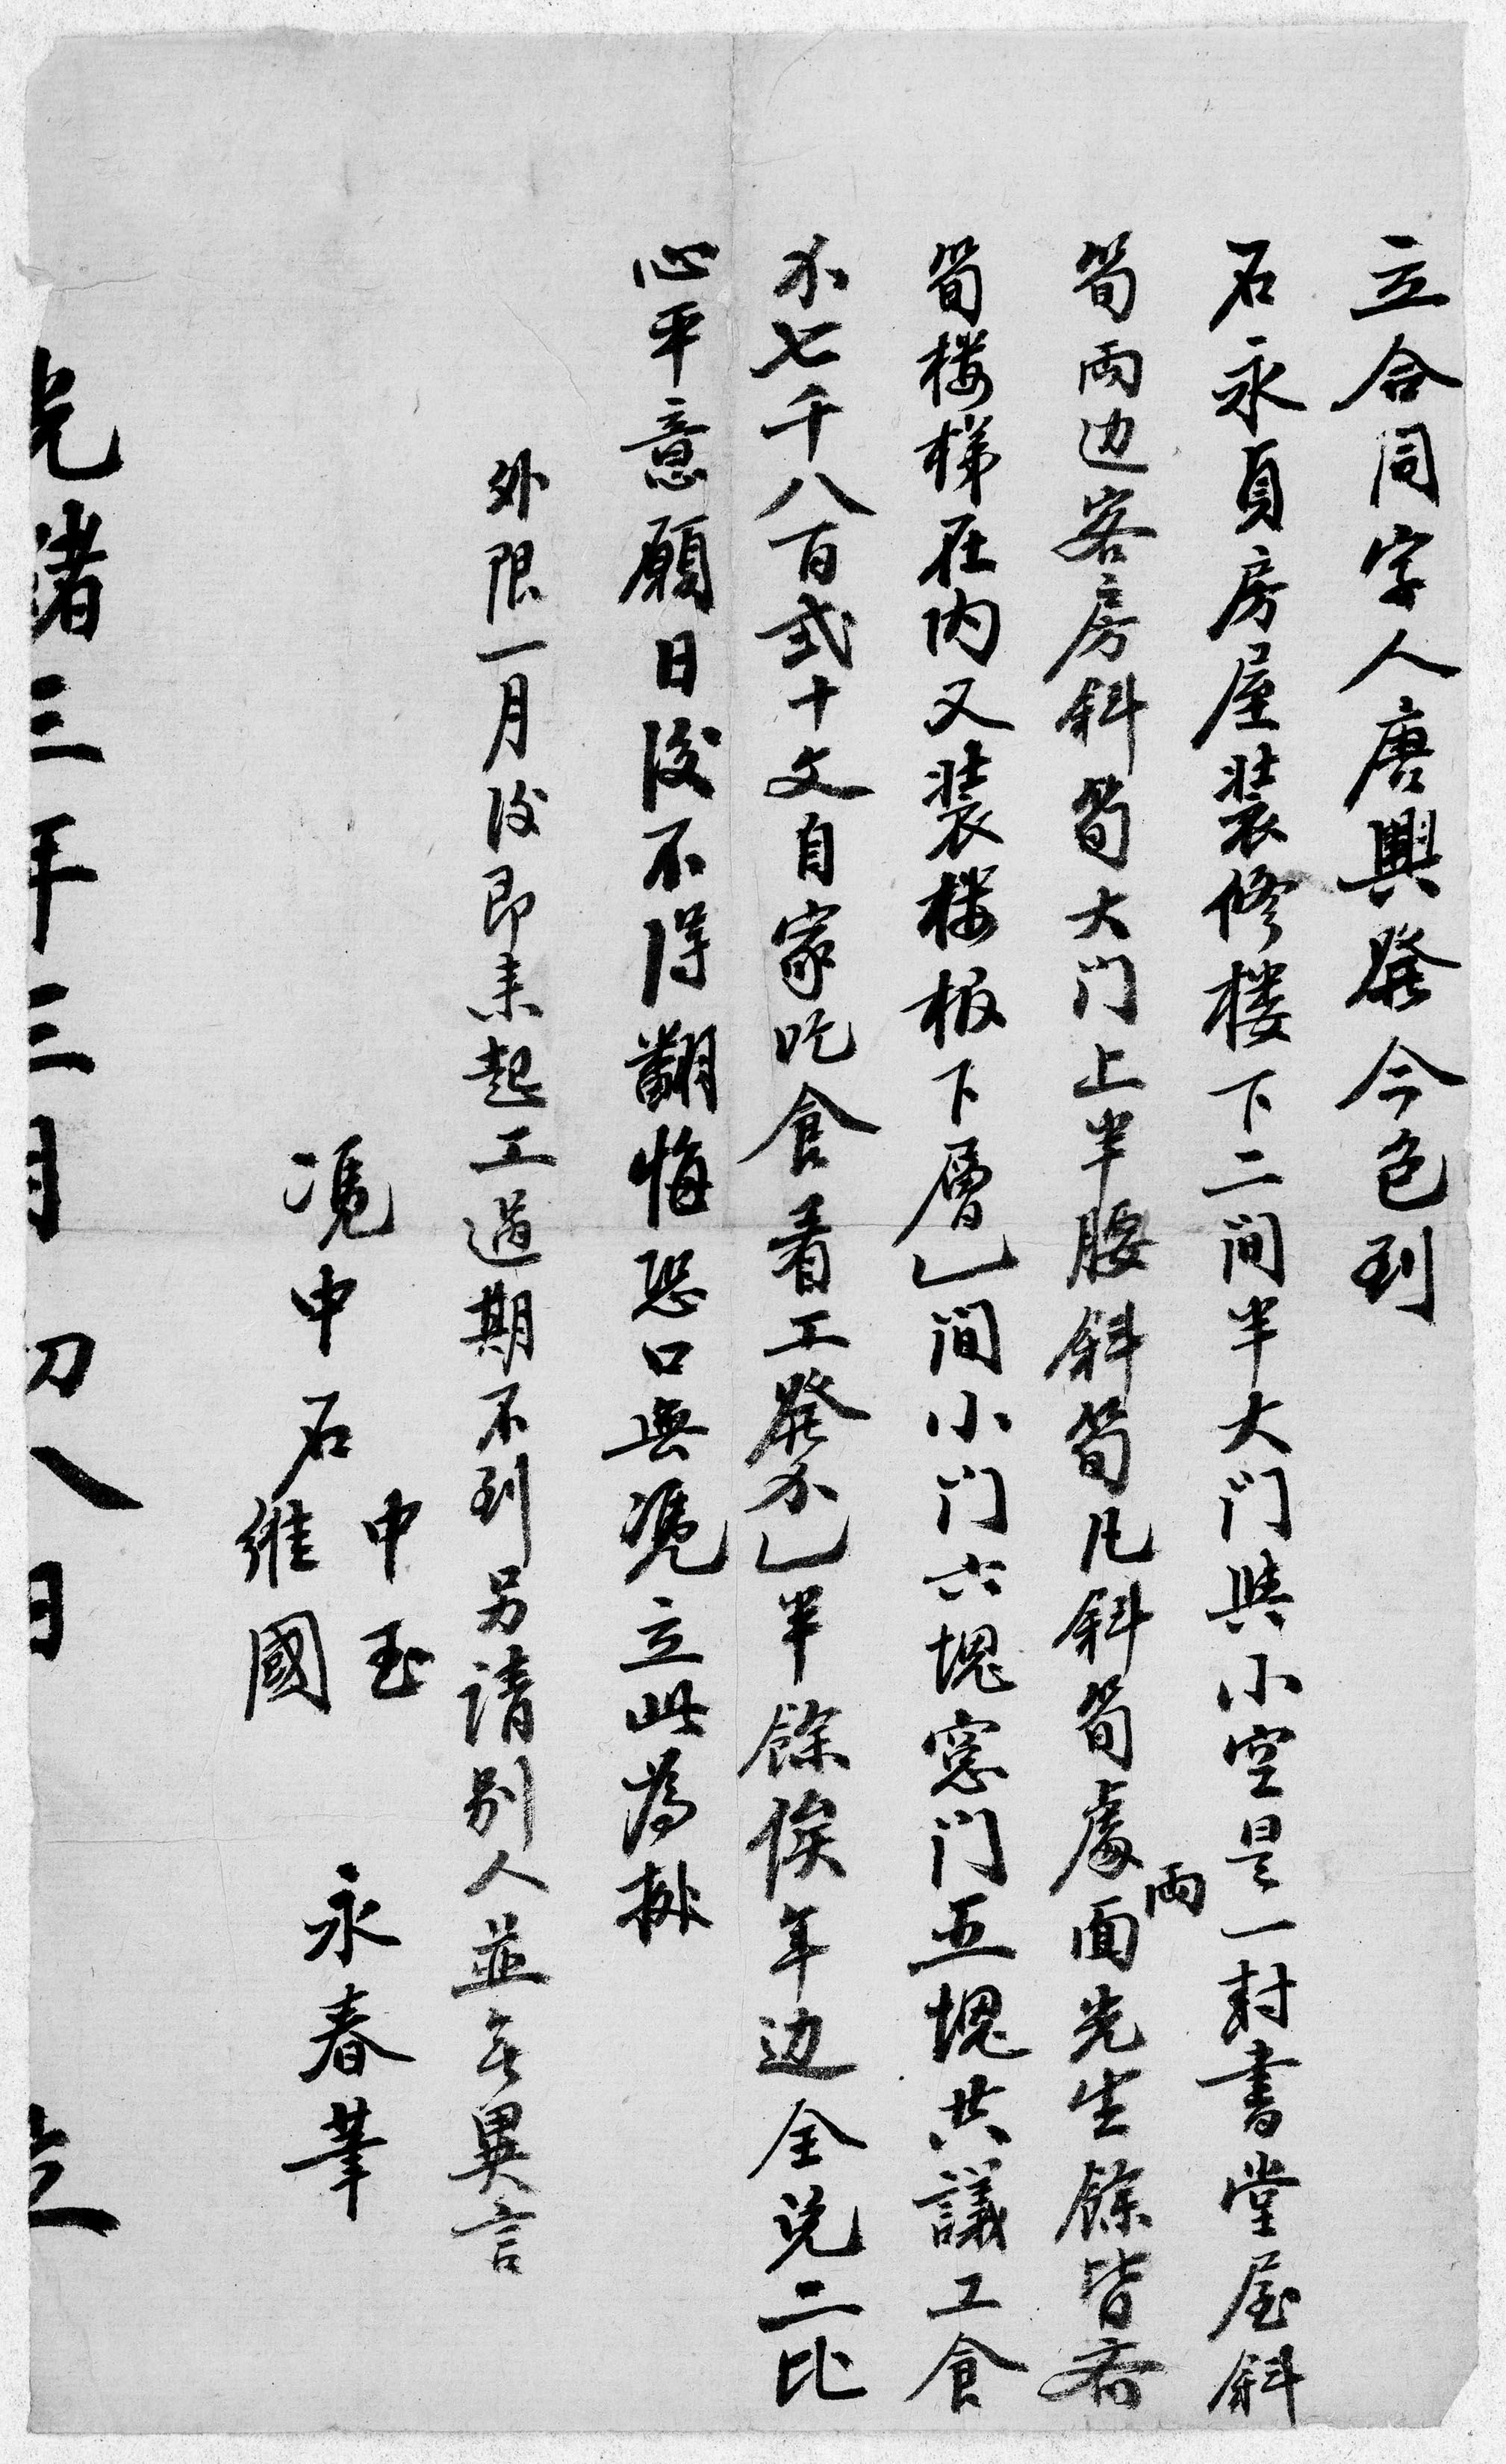 立合同字人唐興發今包到
石永貞房屋装修楼下二间半大门與小空是一封書堂屋斜
筍兩边客房斜筍大门上半腰斜筍凡斜筍處兩面光生餘皆齊
筍楼梯在内又装楼板下層乚间小门六塊窓门五塊共議工食
尒七千八百弍十文自家吃食看工發尒乚半餘俟年边全兑二比
心平意願日後不得翻悔恐口無凴立此為㩀
外限一月後即来起工過期不到另請別人並无異言
凴中 石 申玉 維國 永春筆
光緒三年三月初八日 立